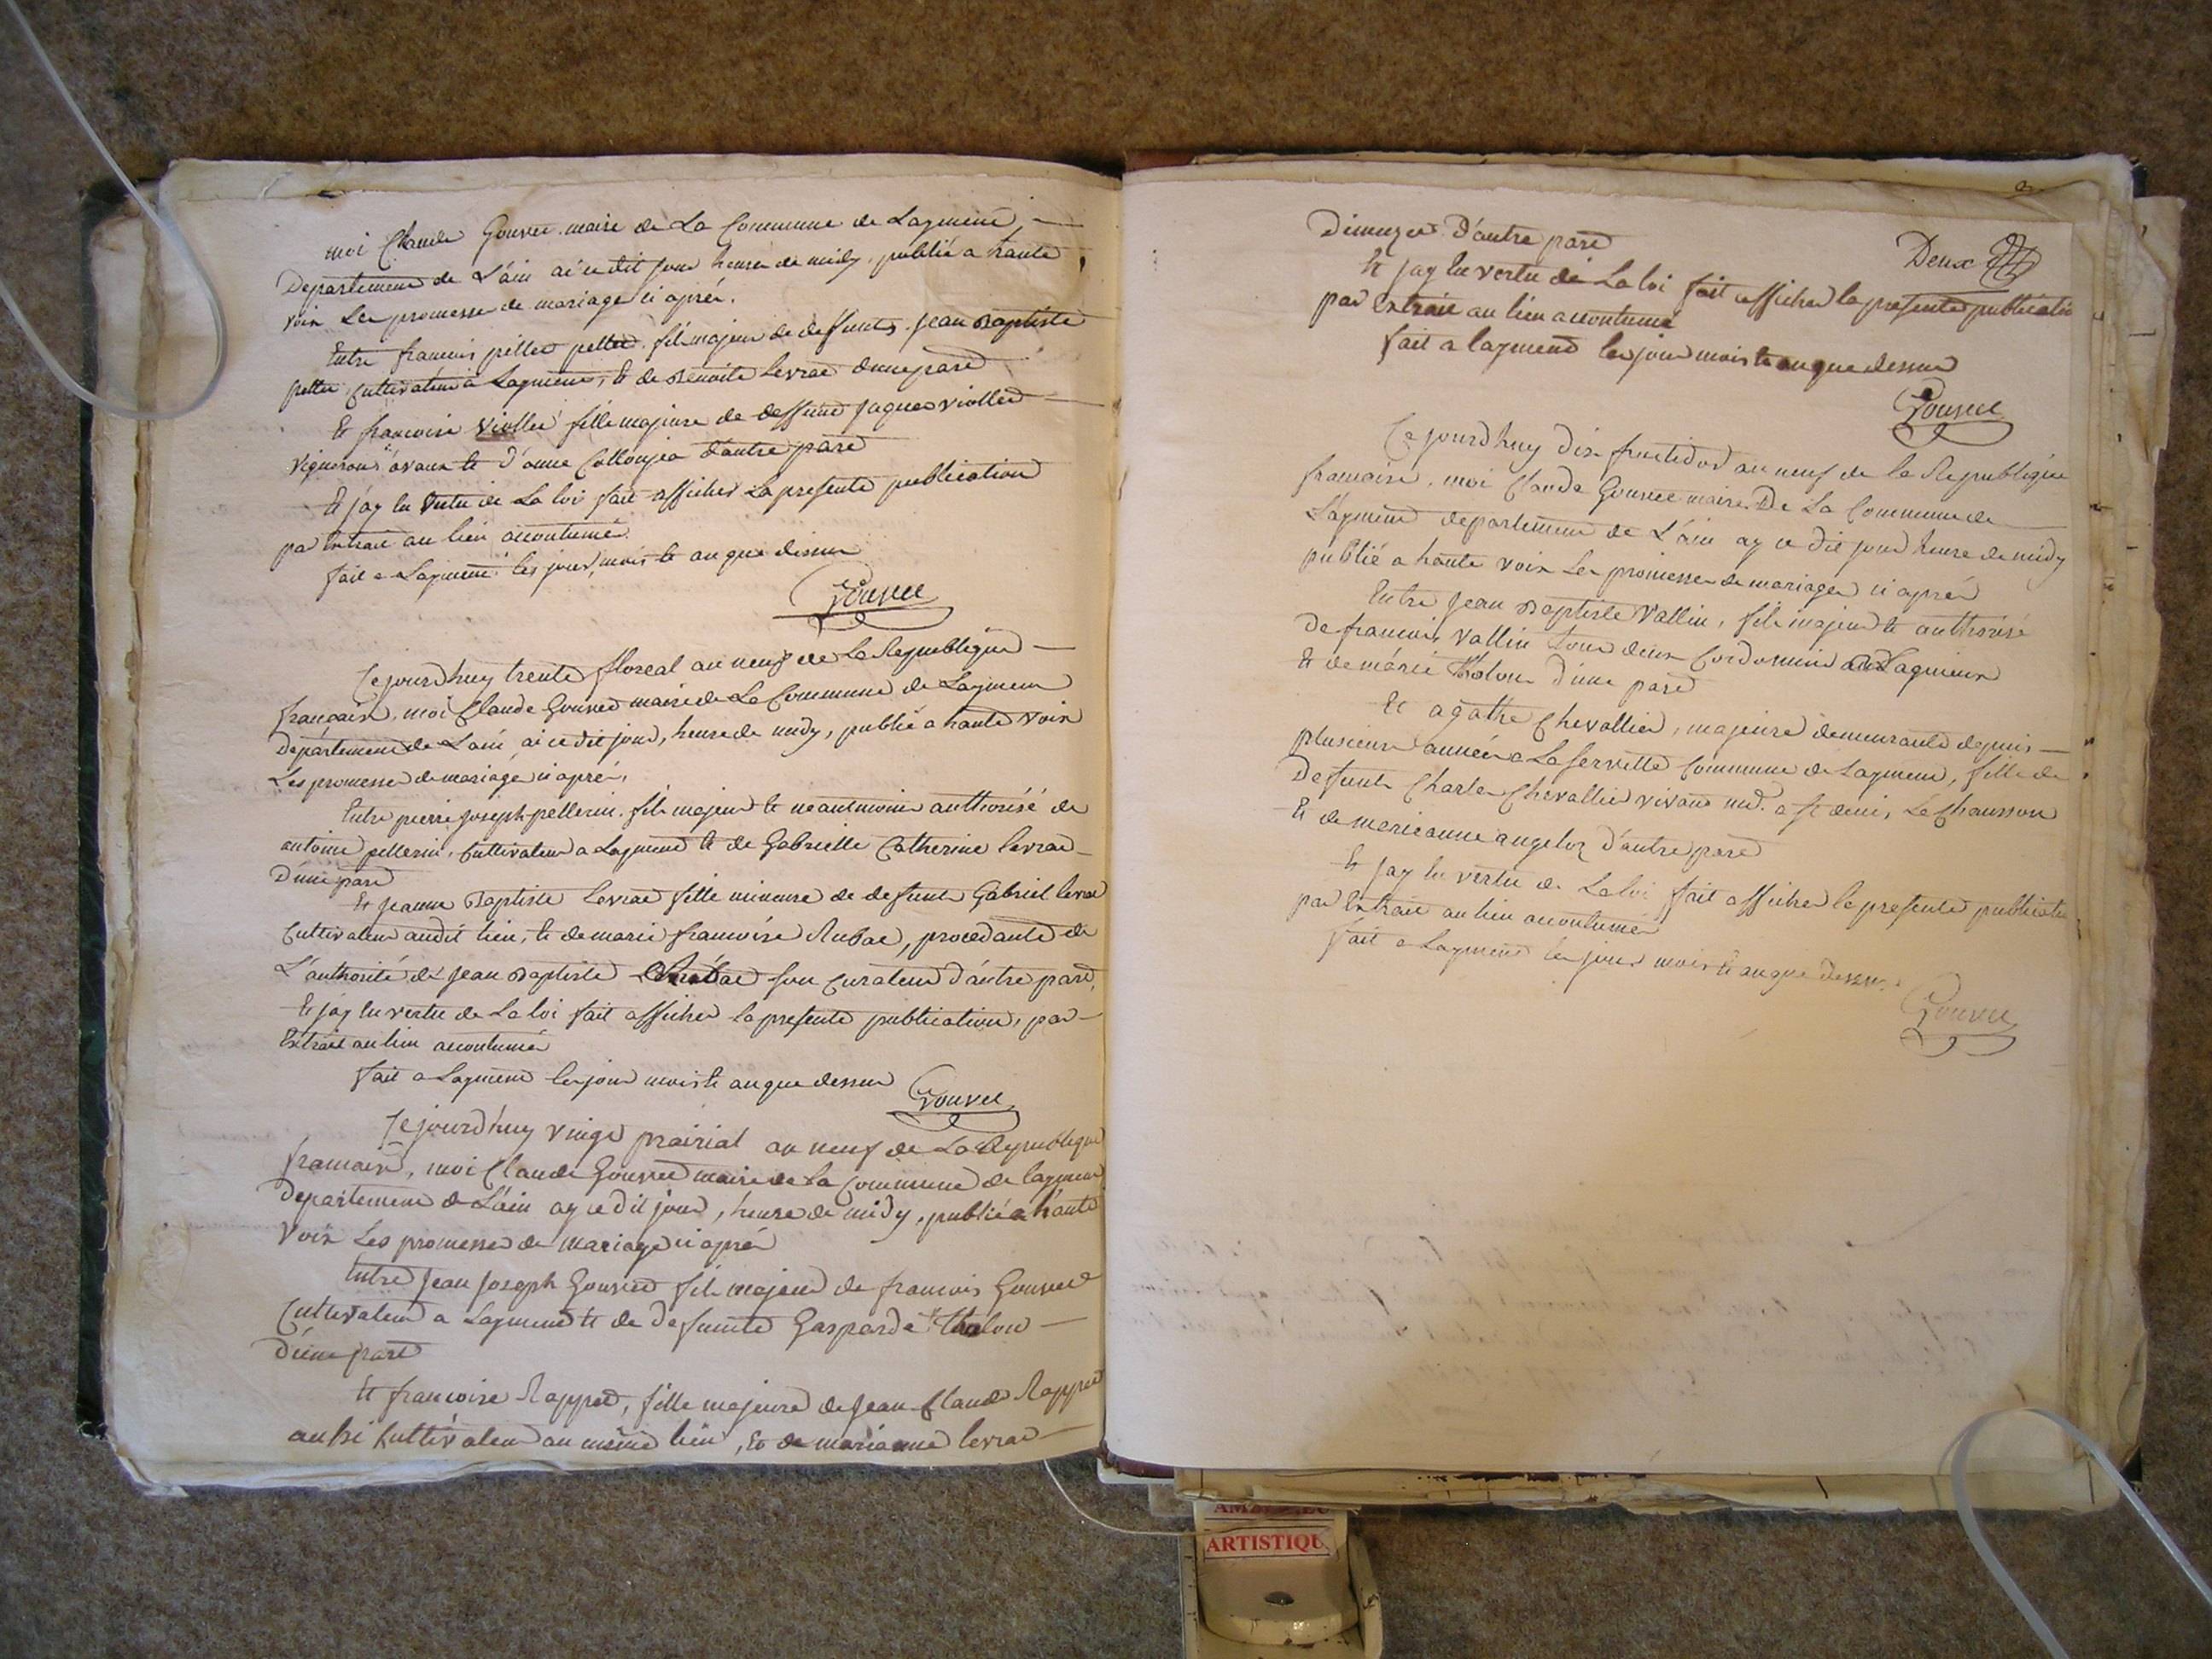 moi Claude Gouvee maire de La Commune de Lagnieu
Departement de L'ain ai ce dit jour heure de midy, publié a haute
voix Les promesse de mariage ci aprés.
Entre francois pillet pellet fils majeur de defunts Jean Baptiste
pettet cultivateur a Lagnieu, et de Benoite Levrat d'une part
Et francoise Viollet fille majeure de deffunt Jaques viollet
vigneron vivant et d'anne Collonjea d'autre part
Et j'ay En vertu de La loi fait afficher La presente publication
par Extrait au lieu accoutumé
fait a Lagnieu les jour, mois et an que dessus
Gouvee
Cejourd'huy trente floreal an neuf de La Republique
francaise, moi Claude Gouvee maire de La Commune de Lagnieu
Departement de L'ain ai ce dit jour, heure de midy, publié a haute voix
Les promesses de mariage ci aprés,
Entre pierre joseph pellerin, fils majeur et neantmoins authorisé de
antoine pellerin, Cultivateur a Lagnieu et de Gabrielle Catherine levrat
D'une part
Et Jeanne Baptiste Levrat fille mineure de defunt Gabriel levrat
Cultivateur audit lieu, et de marie francoise Rubat, procedante de
L'authorité de Jean Baptiste Rubat son Curateur d'autre part,
Et j'ay En vertu de La loi fait afficher la presente publication, par
Extrait au lieu accoutumé
fait a Lagnieu les jour mois et an que dessus
Gouvee
Cejourd'huy vingt prairial an neuf de La Republique
francaise, moi Claude Gouvee maire de La Commune de lagnieu
Departement de L'ain ay ce dit jour, heure de midy, publié a haute
Voix Les promesses de mariage ci aprés
Entre Jean Joseph Gouvee fils majeur de francois Gouvee
Cultivateur a Lagnieu et de defunte Gasparde Tholon
D'une part
Et francoise Rappet, fille majeure de Jean Claude Rappet
aussi Cultivateur au même lieu, Et de marianne levrat
Deux
d'autre part
Et j'ay En vertu de La loi fait afficher la presente publication
par Extrait au lieu accoutumé
fait a lagnieu les jour mois et an que dessus
Gouvee
Ce jourd'huy dix fructidor an neuf de la Republique
francaise, moi Claude Gouvee maire De La Commune de
Lagnieu departement de L'ain ay ce dit jour heure de midy
publié a haute voix Les promesses de mariage ci aprés
Entre Jean Baptiste Vallin, fils majeur et authorisé
De francois Vallin tous deux Cordonnier a Lagnieu
Et de marie Tholon d'une part
Et agathe Chevallier, majeure demeurante depuis
plusieurs années a La Servette Commune de Lagnieu, fille de
Defunts Charles Chevallier vivant md. a St denis Le Chausson
Et de marieanne angeloz d'autre part
Et j'ay En vertu de La loi fait afficher la presente publication
par Extrait au lieu accoutumé
fait a Lagnieu les jour mois et an que dessus
Gouvee
ARTISTIQU